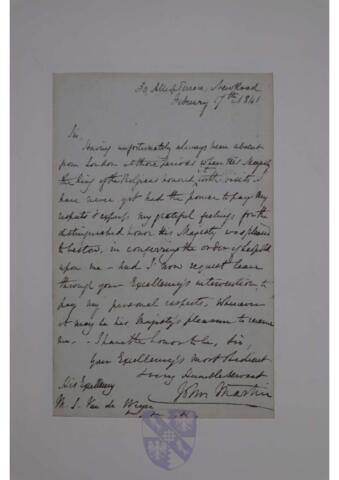 30, Allsop Terrace, New Road
February 17th 1841
Sir,
Having unfortunately always been absent
from London at those periods when His Majesty
the King of the Belgians honored it with visits, I
have never yet had the power to pay my
respects & express my grateful feelings, for the
distinguished honor His Majesty was pleased
to bestow, in conferring the order of Leopold
upon me - and I now request leave
through your Excellency's intervention to
pay my personal respects. Whenever
it may be his Majesty's pleasure to receive
me. - I have the honor to be, Sir,
Your Excellency's most obedient
& very humble servant
John Martin
His Excellency
M. S. Van de Weyer